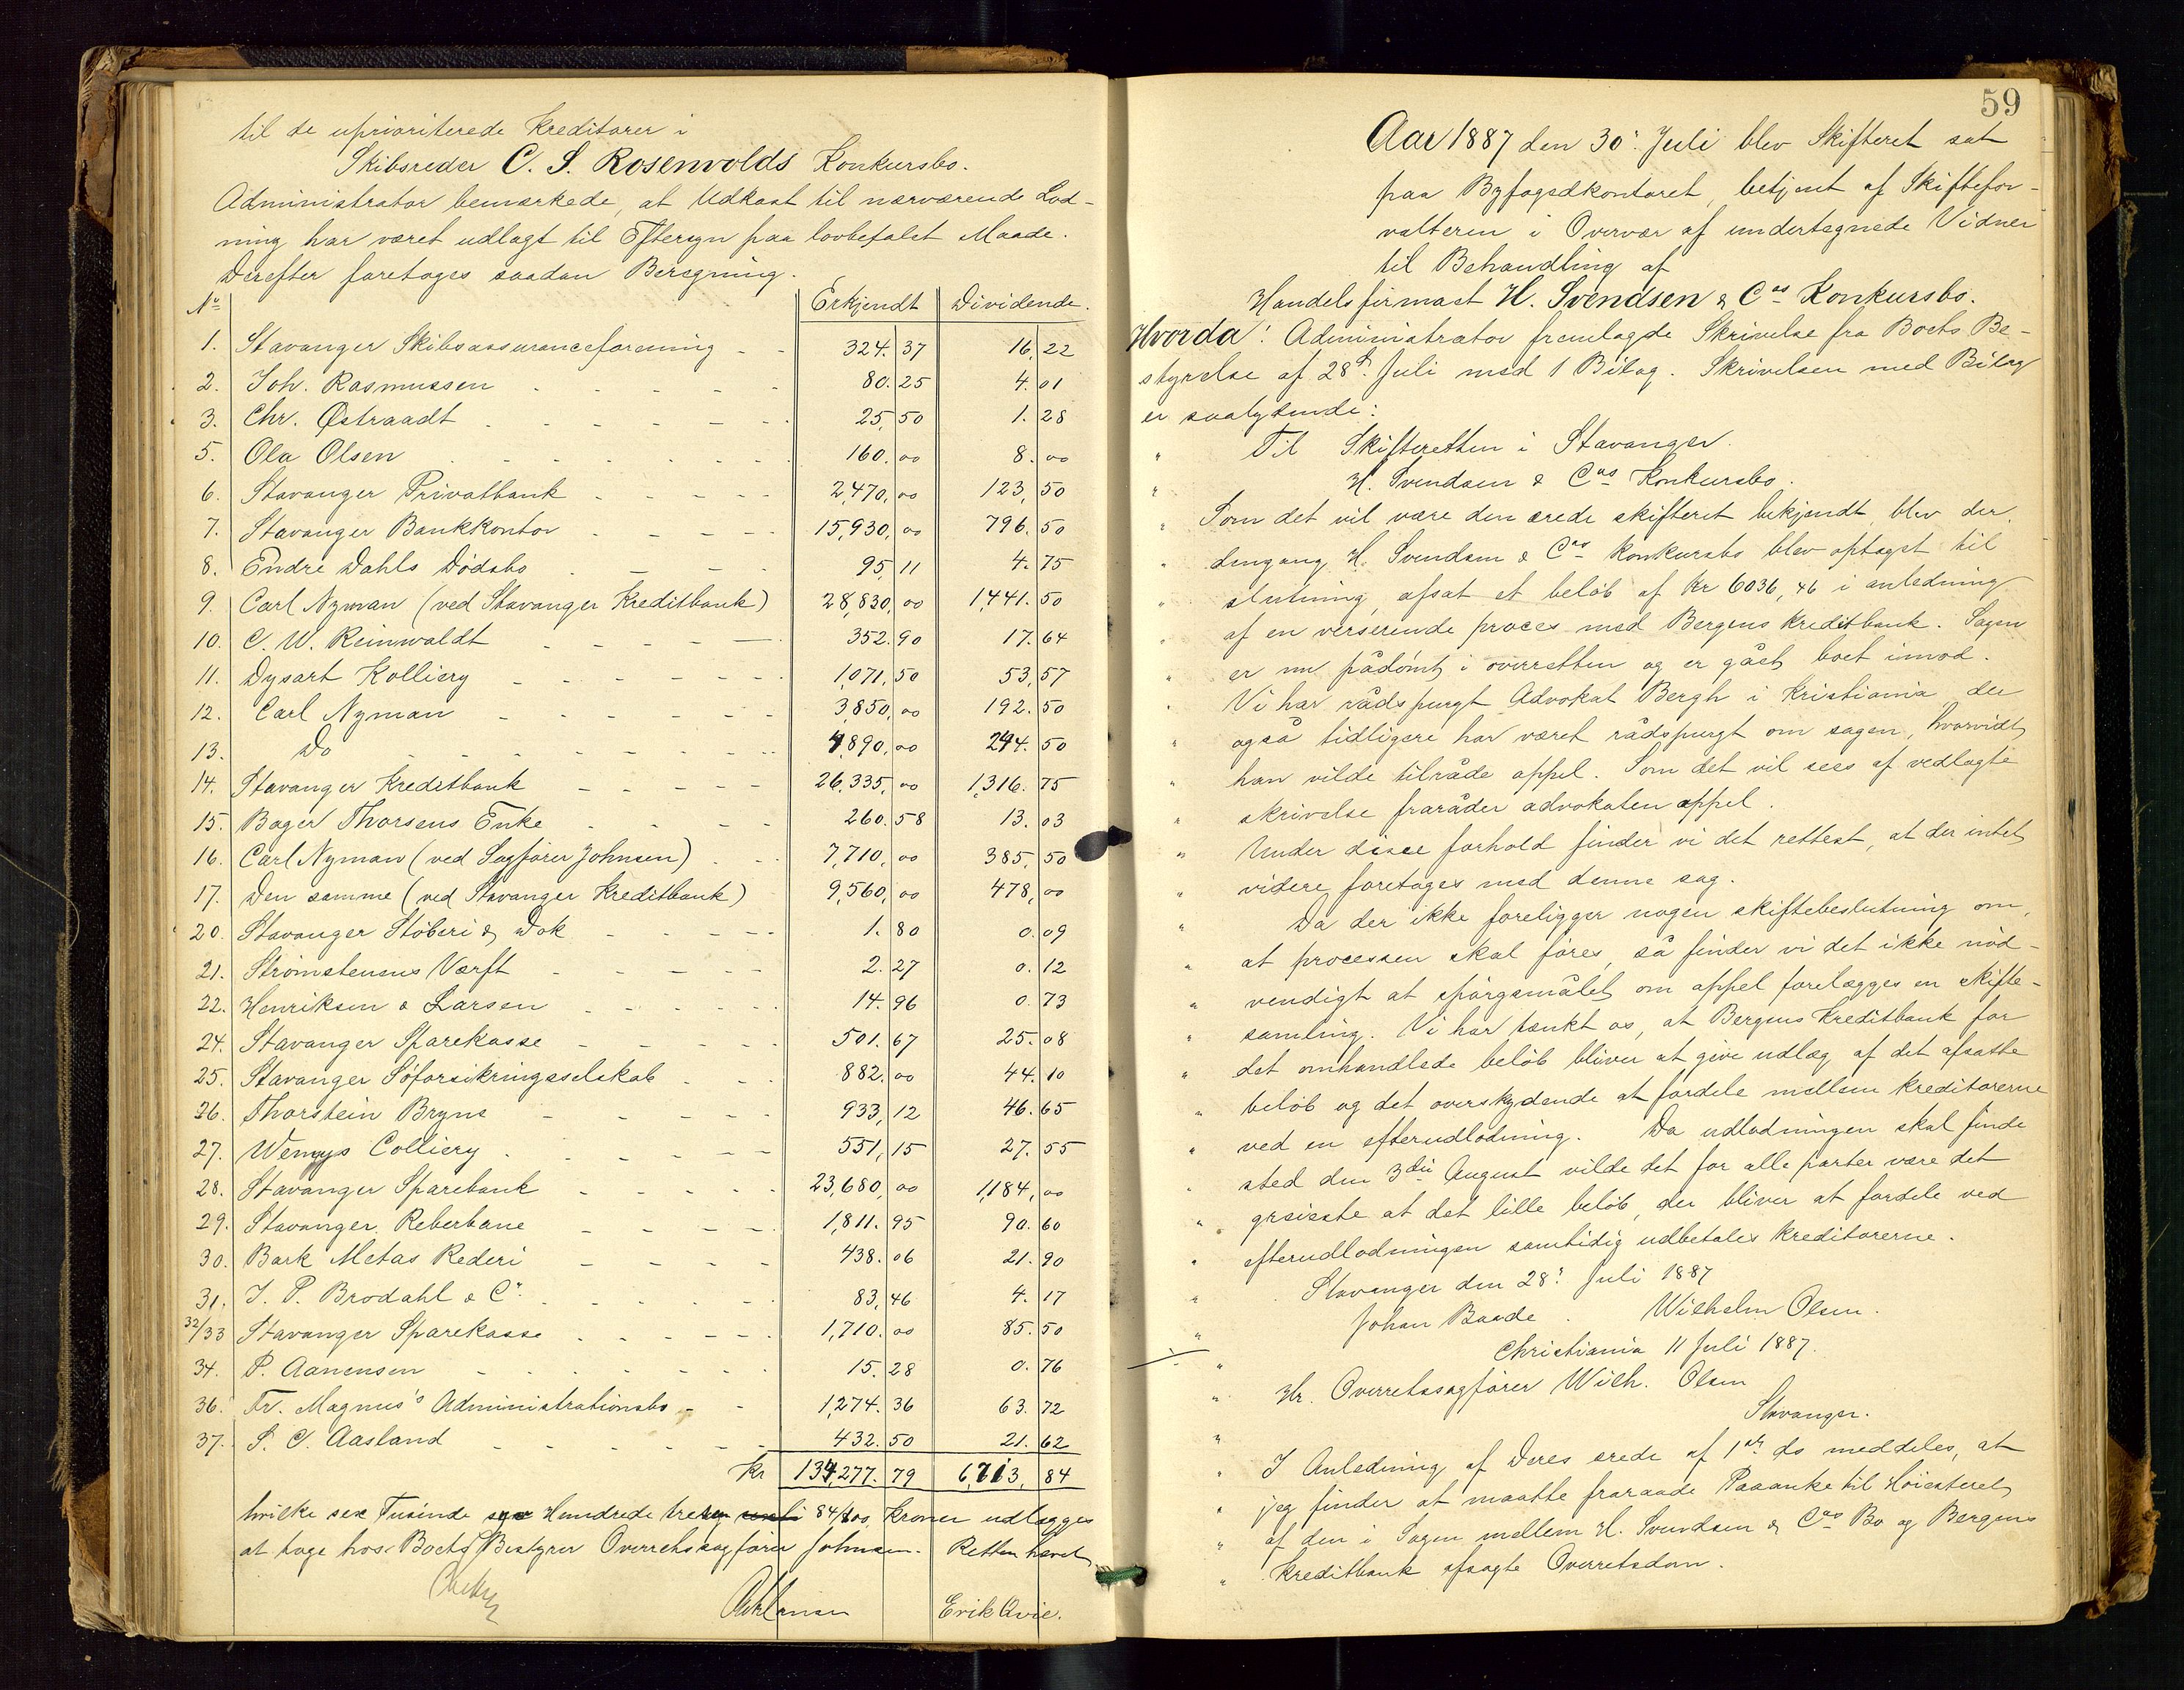 til de uprioriterede Kreditorer i
Skibsreder C. S. Rosenvolds Konkursbo.
Administrator bemærkede, at Udkast til nærværende Lod-
ning har været udlagt til Eftersyn paa lovbefalet Maade.
Derefter foretoges saadan Beregning.
No Erkjendt Dividende.
1. Stavanger Skibsassuranceforening 324. 37 16. 22
2. Joh. Rasmussen 80. 25 4. 01
3. Chr. Østraadt 25, 50 1. 28
5. Ola Olsen 160. 00 8. 00
6. Stavanger Privatbank 2,470, 00 123, 50
7. Stavanger Bankkontor 15,930, 00 796. 50
8. Endre Dahls Dødsbo 95, 11 4. 75
9. Carl Nyman (ved Stavanger Kreditbank) 28,830, 00 1,441. 50
10. C. W. Reinwaldt 352. 90 17. 64
11. Dysart Kolliery 1,071, 50 53, 57
12. Carl Nyman 3,850, 00 192. 50
13. Do 4,890, 00 244. 50
14. Stavanger Kreditbank 26,335, 00 1,316. 75
15. Bager Thorsens Enke 260. 58 13. 03
16. Carl Nyman (ved Sagfører Johnsen) 7,710, 00 385, 50
17. Den samme (ved Stavanger Kreditbank) 9,560, 00 478, 00
20. Stavanger Støberi & Dok 1. 80 0. 09
21. Strømstenens Værft 2. 27 0. 12
22. Henriksen & Larsen 14. 96 0. 73
24. Stavanger Sparekasse 501. 67 25. 08
25. Stavanger Søforsikringsselskab 882. 00 44. 10
26. Thorstein Bryne 933, 12 46. 65
27. Wemys Colliery 551, 15 27. 55
28. Stavanger Sparebank 23,680, 00 1,184, 00
29. Stavanger Reberbane 1,811. 95 90. 60
30. Bark Metas Rederi 438. 06 21. 90
31. J. P. Brodahl & Co 83, 46 4. 17
32/33 Stavanger Sparekasse 1,710. 00 85. 50
34. P. Aanensen 15. 28 0. 76
36. Fr. Magnus's Administrationsbo 1,274. 36 63. 72
37. S. C. Aasland 432. 50 21. 62
Kr 134,277. 79 6,713, 84
hvilke sex Tusinde syv Hundrede tretten 84/100 Kroner udlægges
at tage hos Boets Bestyrer Overretssagfører Johnsen. Retten hævet
Erik Qvie.
59
Aar 1887 den 30. Juli blev Skifteret sat
paa Byfogedkontoret, betjent af Skiftefor-
valteren i Overvær af undertegnede Vidner
til Behandling af
Handelsfirmaet H. Svendsen & Cos Konkursbo.
Hvorda: Administrator fremlagde Skrivelse fra Boets Be-
styrelse af 28de Juli med 1 Bilag. Skrivelsen med Bilag
er saalydende:
" Til Skifteretten i Stavanger.
" H. Svendsen & Cos Konkursbo.
" Som det vil være den ærede skifteret bekjendt, blev der,
" dengang H. Svendsen & Cos Konkursbo blev optaget til
" slutning, afsat et beløb af Kr 6036,46 i anledning
" af en verserende proces med Bergens Kreditbank. Sagen
" er nu pådømt i overretten og er gået boet imod.
" Vi har rådspurgt Advokat Bergh i Kristiania, der
" også tidligere har været rådspurgt om sagen, hvorvidt
" han vilde tilråde appel. Som det vil sees af vedlagte
" skrivelse fraråder advokaten appel.
" Under disse forhold finder vi det rettest, at der intet
" videre foretages med denne sag.
" Da der ikke foreligger nogen skiftebeslutning om,
" at processen skal føres, så finder vi det ikke nød-
" vendigt at spørgsmålet om appel forelægges en skifte-
" samling. Vi har tænkt os, at Bergens Kreditbank for
" det omhandlede beløb bliver at give udlæg af det afsatte
" beløb og det overskydende at fordele mellem kreditorerne
" ved en efterudlodning. Da udlodningen skal finde
" sted den 3die August vilde det for alle parter være det
" greieste at det lille beløb, der bliver at fordele ved
" efterudlodningen samtidig udbetales kreditorerne.
" Stavanger den 28. Juli 1887
" Johan Baade. Wilhelm Olsen.
" Christiania 11 Juli 1887.
" Hr. Overretssagfører Wilh. Olsen
" Stavanger.
" I Anledning af Deres ærede af 1ste ds meddeles, at
" jeg finder at maatte fraraade Paaanke til Høiesteret
" af den i Sagen mellem H. Svendsen & Cos Bo og Bergens
" Kreditbank afsagte Overretsdom.